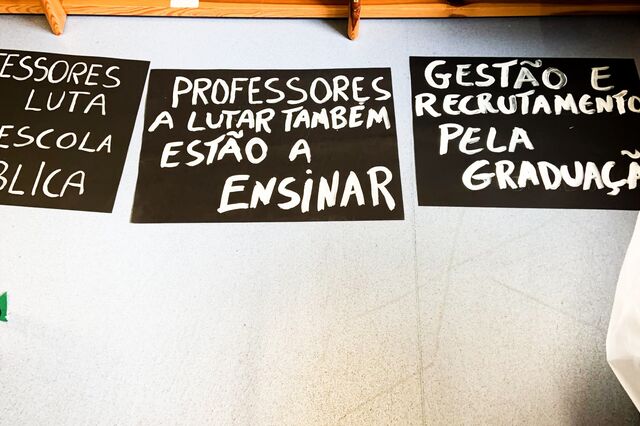 ESSORES
LUTA
ESCOLA
BLICA
PROFESSORES
A LUTAR TAMBÉM
ESTÃO A
ENSINAR
GESTÃO E
RECRUTAMENTO
PELA
GRADUAÇÃ